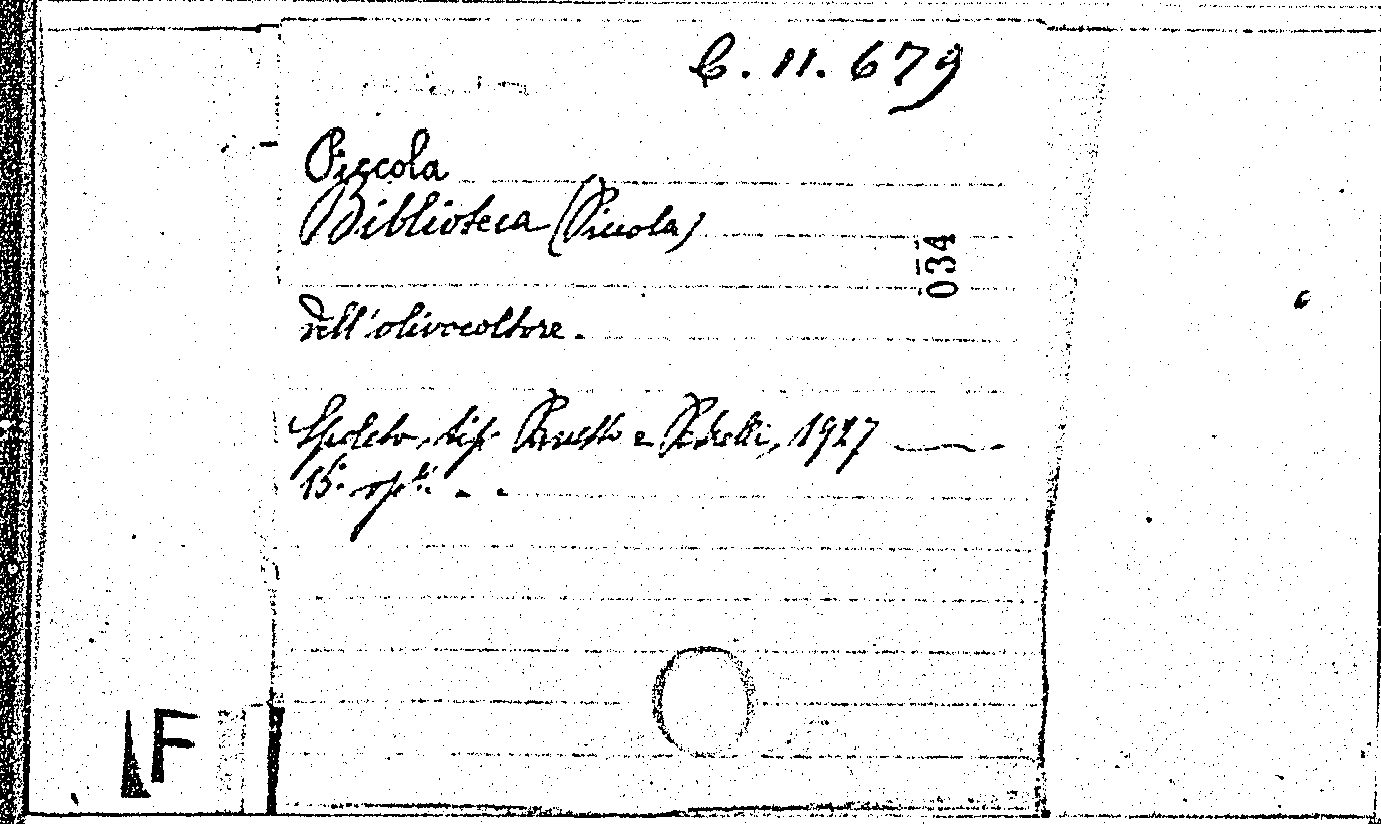 C. 11. 679
Piccola
Biblioteca (Piccola)
034
dell'olivocoltore.
Spoleto, tip. Panetto e Petrelli, 1927
15.
F